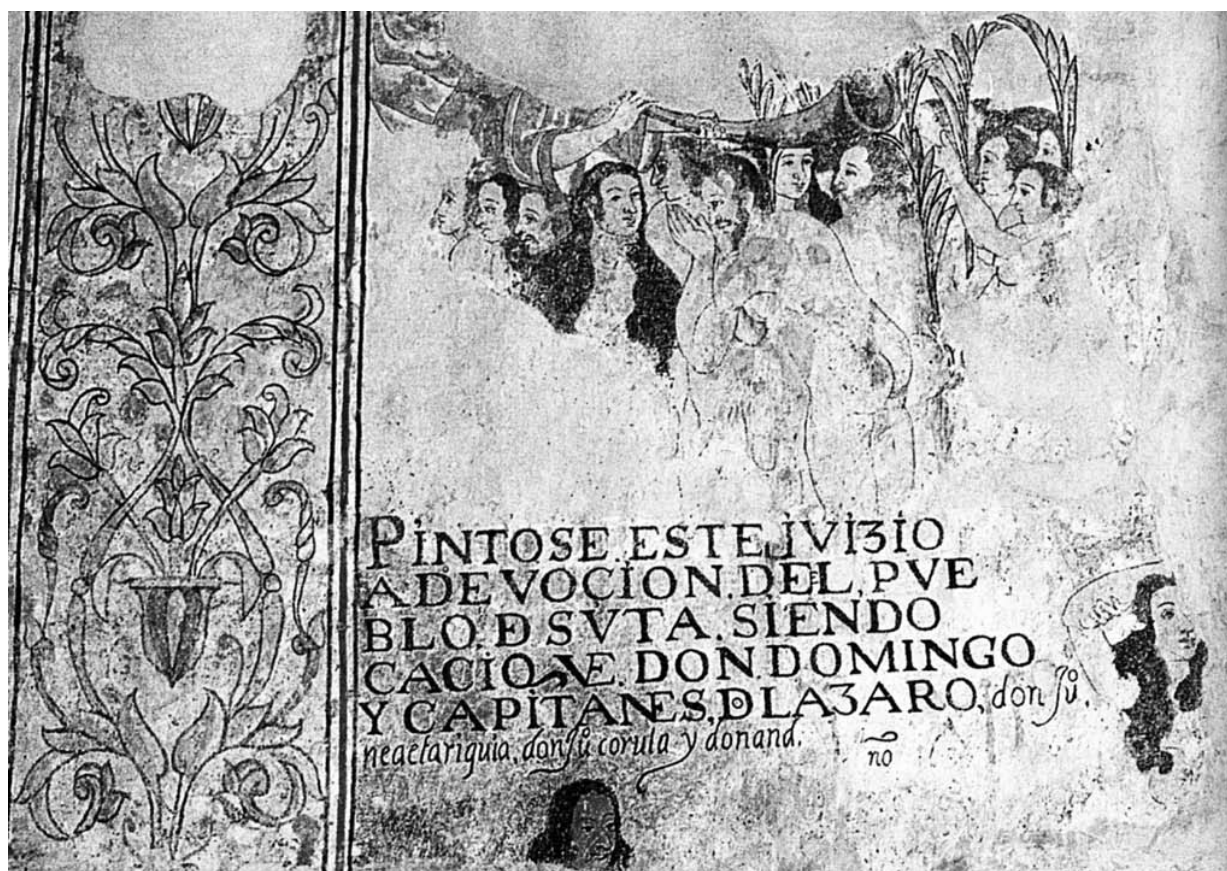 PINTOSE. ESTE JVIʒIO
A DEVOÇION. DEL. PVE
BLO. Đ SVTA. SIENDO
CACIQVE. DON. DOMINGO
Y CAPITANES, D LAʒARO, don Jů,
neaetariquia, don Jů corula y donand.
no